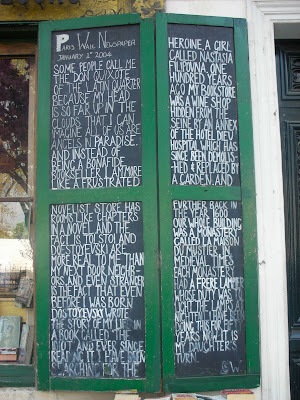 PARIS WALL NEWSPAPER
JANUARY 1st 2004
SOME PEOPLE CALL ME
THE DON QUIXOTE
OF THE LATIN QUARTER
BECAUSE MY HEAD
IS SO FAR UP IN THE
CLOUDS THAT I CAN
IMAGINE ALL OF US ARE
ANGELS IN PARADISE.
AND INSTEAD OF
BEING A BONAFIDE
BOOKSELLER I AM MORE
LIKE A FRUSTRATED
NOVELIST STORE HAS
ROOMS LIKE CHAPTERS
IN A NOVEL AND THE
FACT IS TOLSTOI AND
DOSTOYEVSKI ARE
MORE REAL TO ME THAN
MY NEXT DOOR NEIGH-
BORS, AND EVEN STRANGER
IS THE FACT THAT EVEN
BEFORE I WAS BORN
DOSTOYEVSKI WROTE
THE STORY OF MY LIFE IN
A BOOK CALLED THE
IDIOT AND EVER SINCE
READING IT I HAVE BEEN
SEARCHING FOR THE
HEROINE, A GIRL
CALLED NASTASIA
FILIPOVNA. ONE
HUNDRED YEARS
AGO MY BOOKSTORE
WAS A WINE SHOP
HIDDEN FROM THE
SEINE BY AN ANNEX
OF THE HOTEL DIEU
HOSPITAL WHICH HAS
SINCE BEEN DEMOLIS-
HED & REPLACED BY
A GARDEN. AND
FURTHER BACK IN THE
YEAR 1600
OUR WHOLE BUILDING
WAS A MONASTERY
CALLED LA MAISON
DU MUSTIER. IN
MEDIEVAL TIMES
EACH MONASTERY
HAD A FRERE LAMPIER
WHOSE DUTY WAS TO
LIGHT THE LAMPS
AT SUNSET. I HAVE BEEN
DOING THIS FOR FIFTY
YEARS NOW IT IS
MY DAUGHTER'S
TURN. GW.